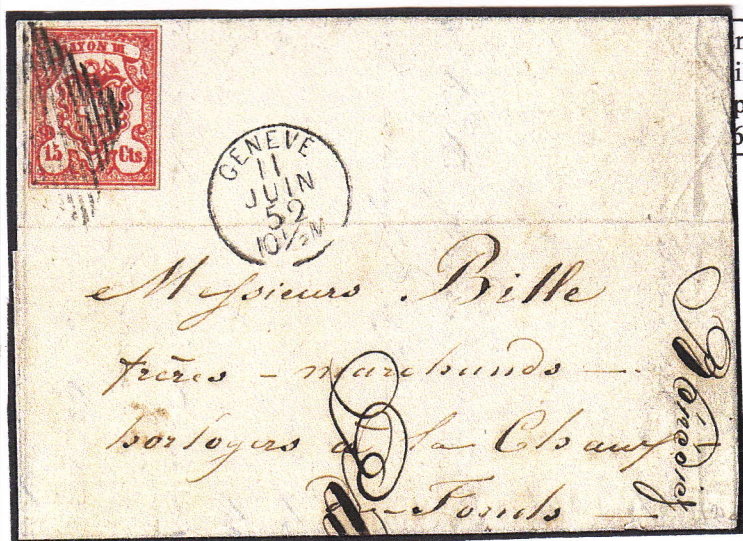 RAYON III
15 Cts.
GENEVE
11
JUIN
52
10½M
Messieurs Bille
frères – marchands –
horlogers à la Chaux
de-Fonds –